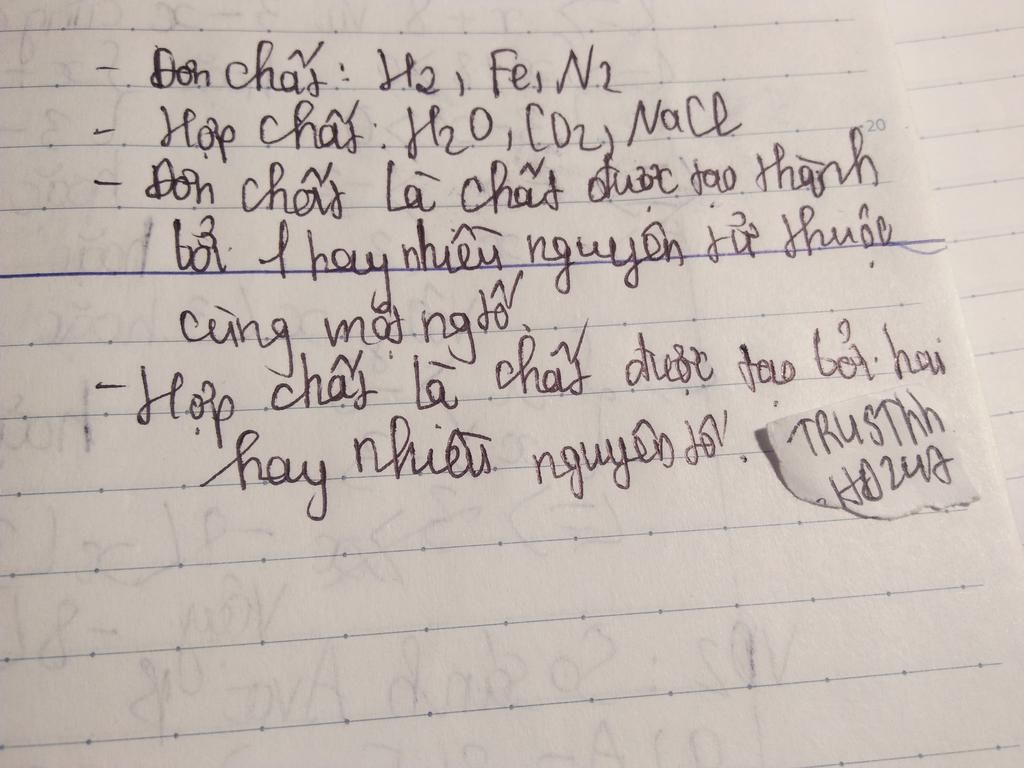 - Đơn chất: H2, Fe, N2
- Hợp chất: H2O, CO2, NaCl
20
- Đơn chất là chất được tạo thành
bởi 1 hay nhiều nguyên tử thuộc
cùng một ngtố.
- Hợp chất là chất được tạo bởi hai
hay nhiều nguyên tố.